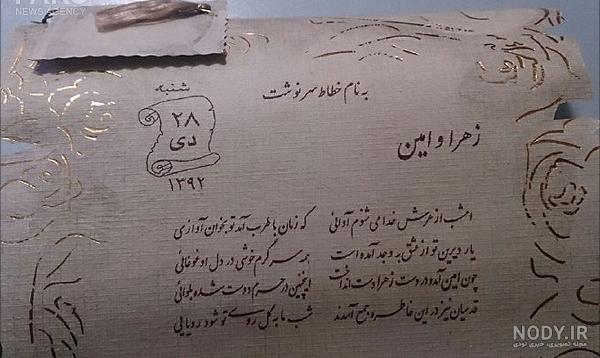 NEWS AGENCY
به نام خطاط سرنوشت
شنبه
۲۸
دی
۱۳۹۲
زهرا و امین
امشب از عرش خدا می شنوم آوائی که زمان با طرب آمد تو بخوان آوازی
یار دیرین تو از عشق به وجد آمده است همه سرگرم خوشی در دل او غوغائی
چون امین آمد و در دست زهرا دست انداخت اینچنین در حرم دوست شده بلوائی
قدسیان نیز در این خاطره جمع آمدند شب ما به گل روی تو شود رویایی
NODY.IR
مجله تصویری، خبری نودی